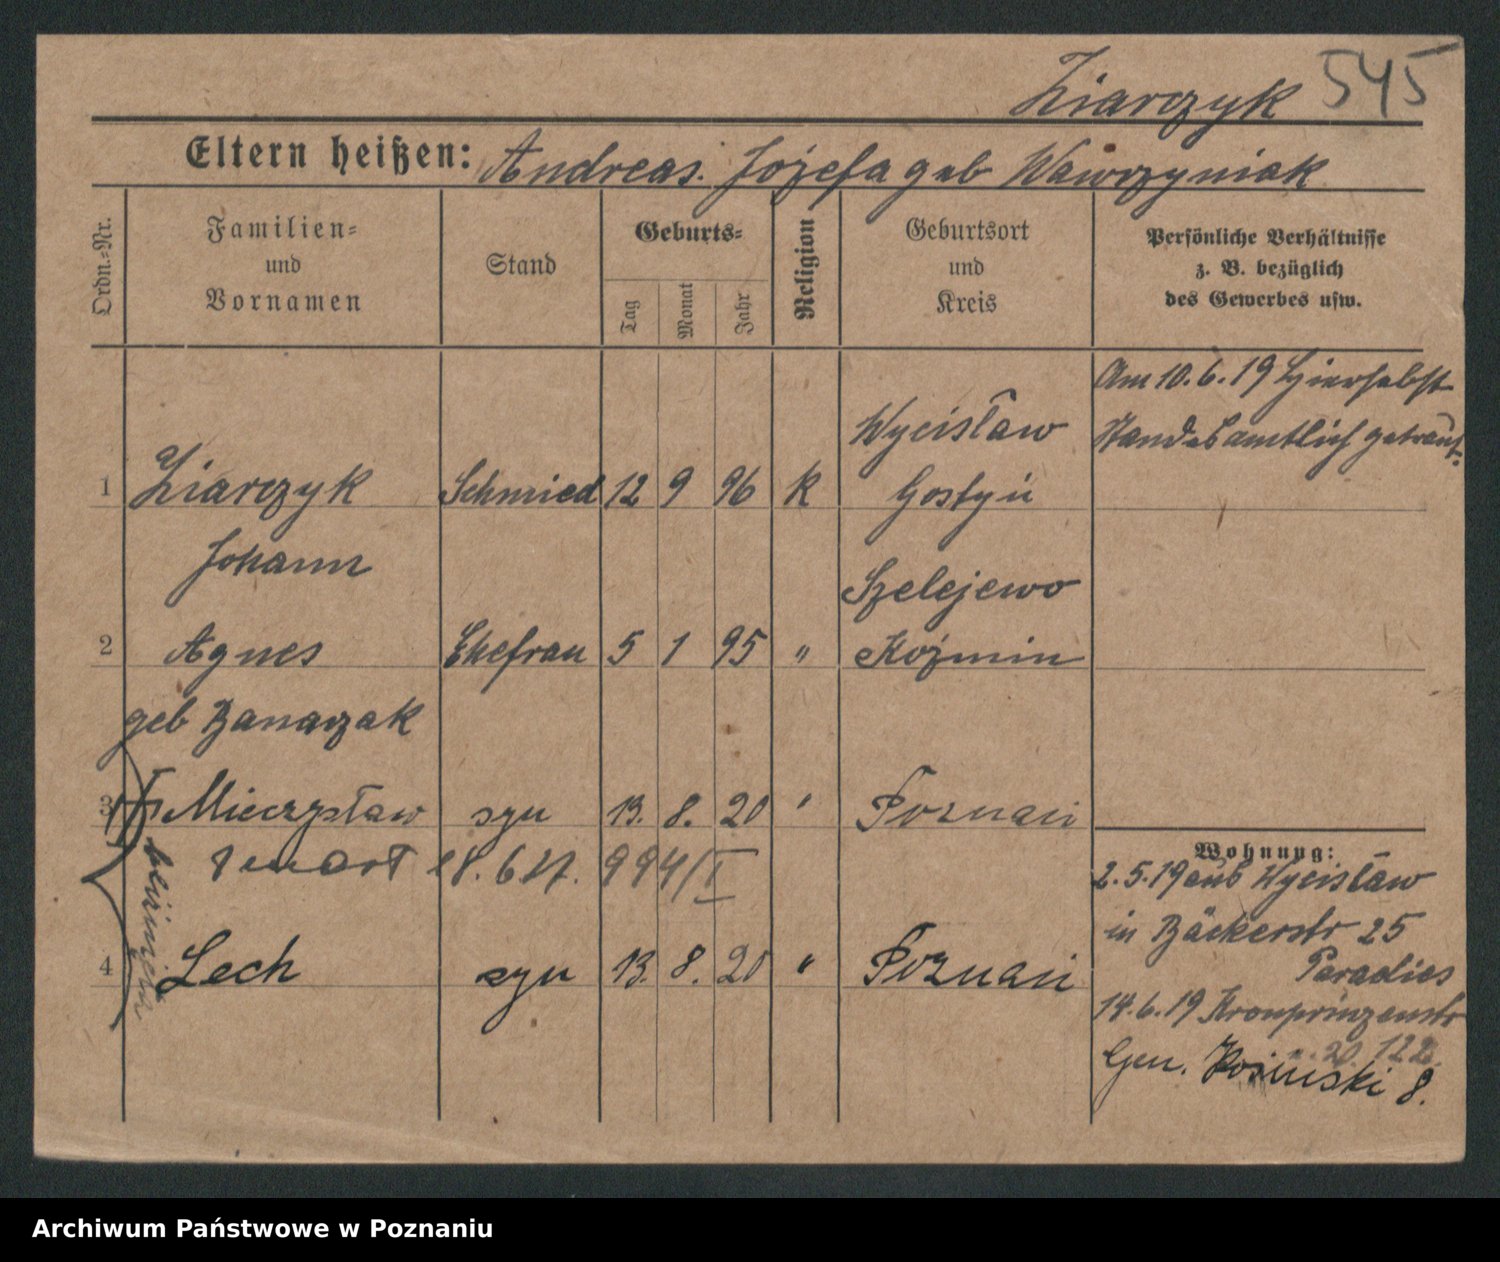 Ziarczyk 545
Eltern heißen: Andreas. Józefa geb Wawrzyniak
Ordn.-Nr.
Familien-
und
Vornamen
Stand
Geburts-
Tag
Monat
Jahr
Religion
Geburtsort
und
Kreis
Persönliche Verhältnisse
z. B. bezüglich
des Gewerbes usw.
Am 10.6.19 Hierselbst
Standesamtlich getraut.
Wycisław
1 Ziarczyk Schmied 12 9 96 K Gostyń
Johann
Szelejewo
2 Agnes Ehefrau 5 1 95 " Koźmin
geb Banaszak
3 Mieczysław syn 13. 8. 20 " Poznań
zmarł 18.6.21. 994/I
bliźnięta
4 Lech syn 13. 8. 20 " Poznań
Wohnung:
2.5.19 aus Wycisław
in Bäckerstr 25
Paradies
14.6.19 Kronprinzenstr
n. 20. 122.
Gen. Kosinski 8.
Archiwum Państwowe w Poznaniu